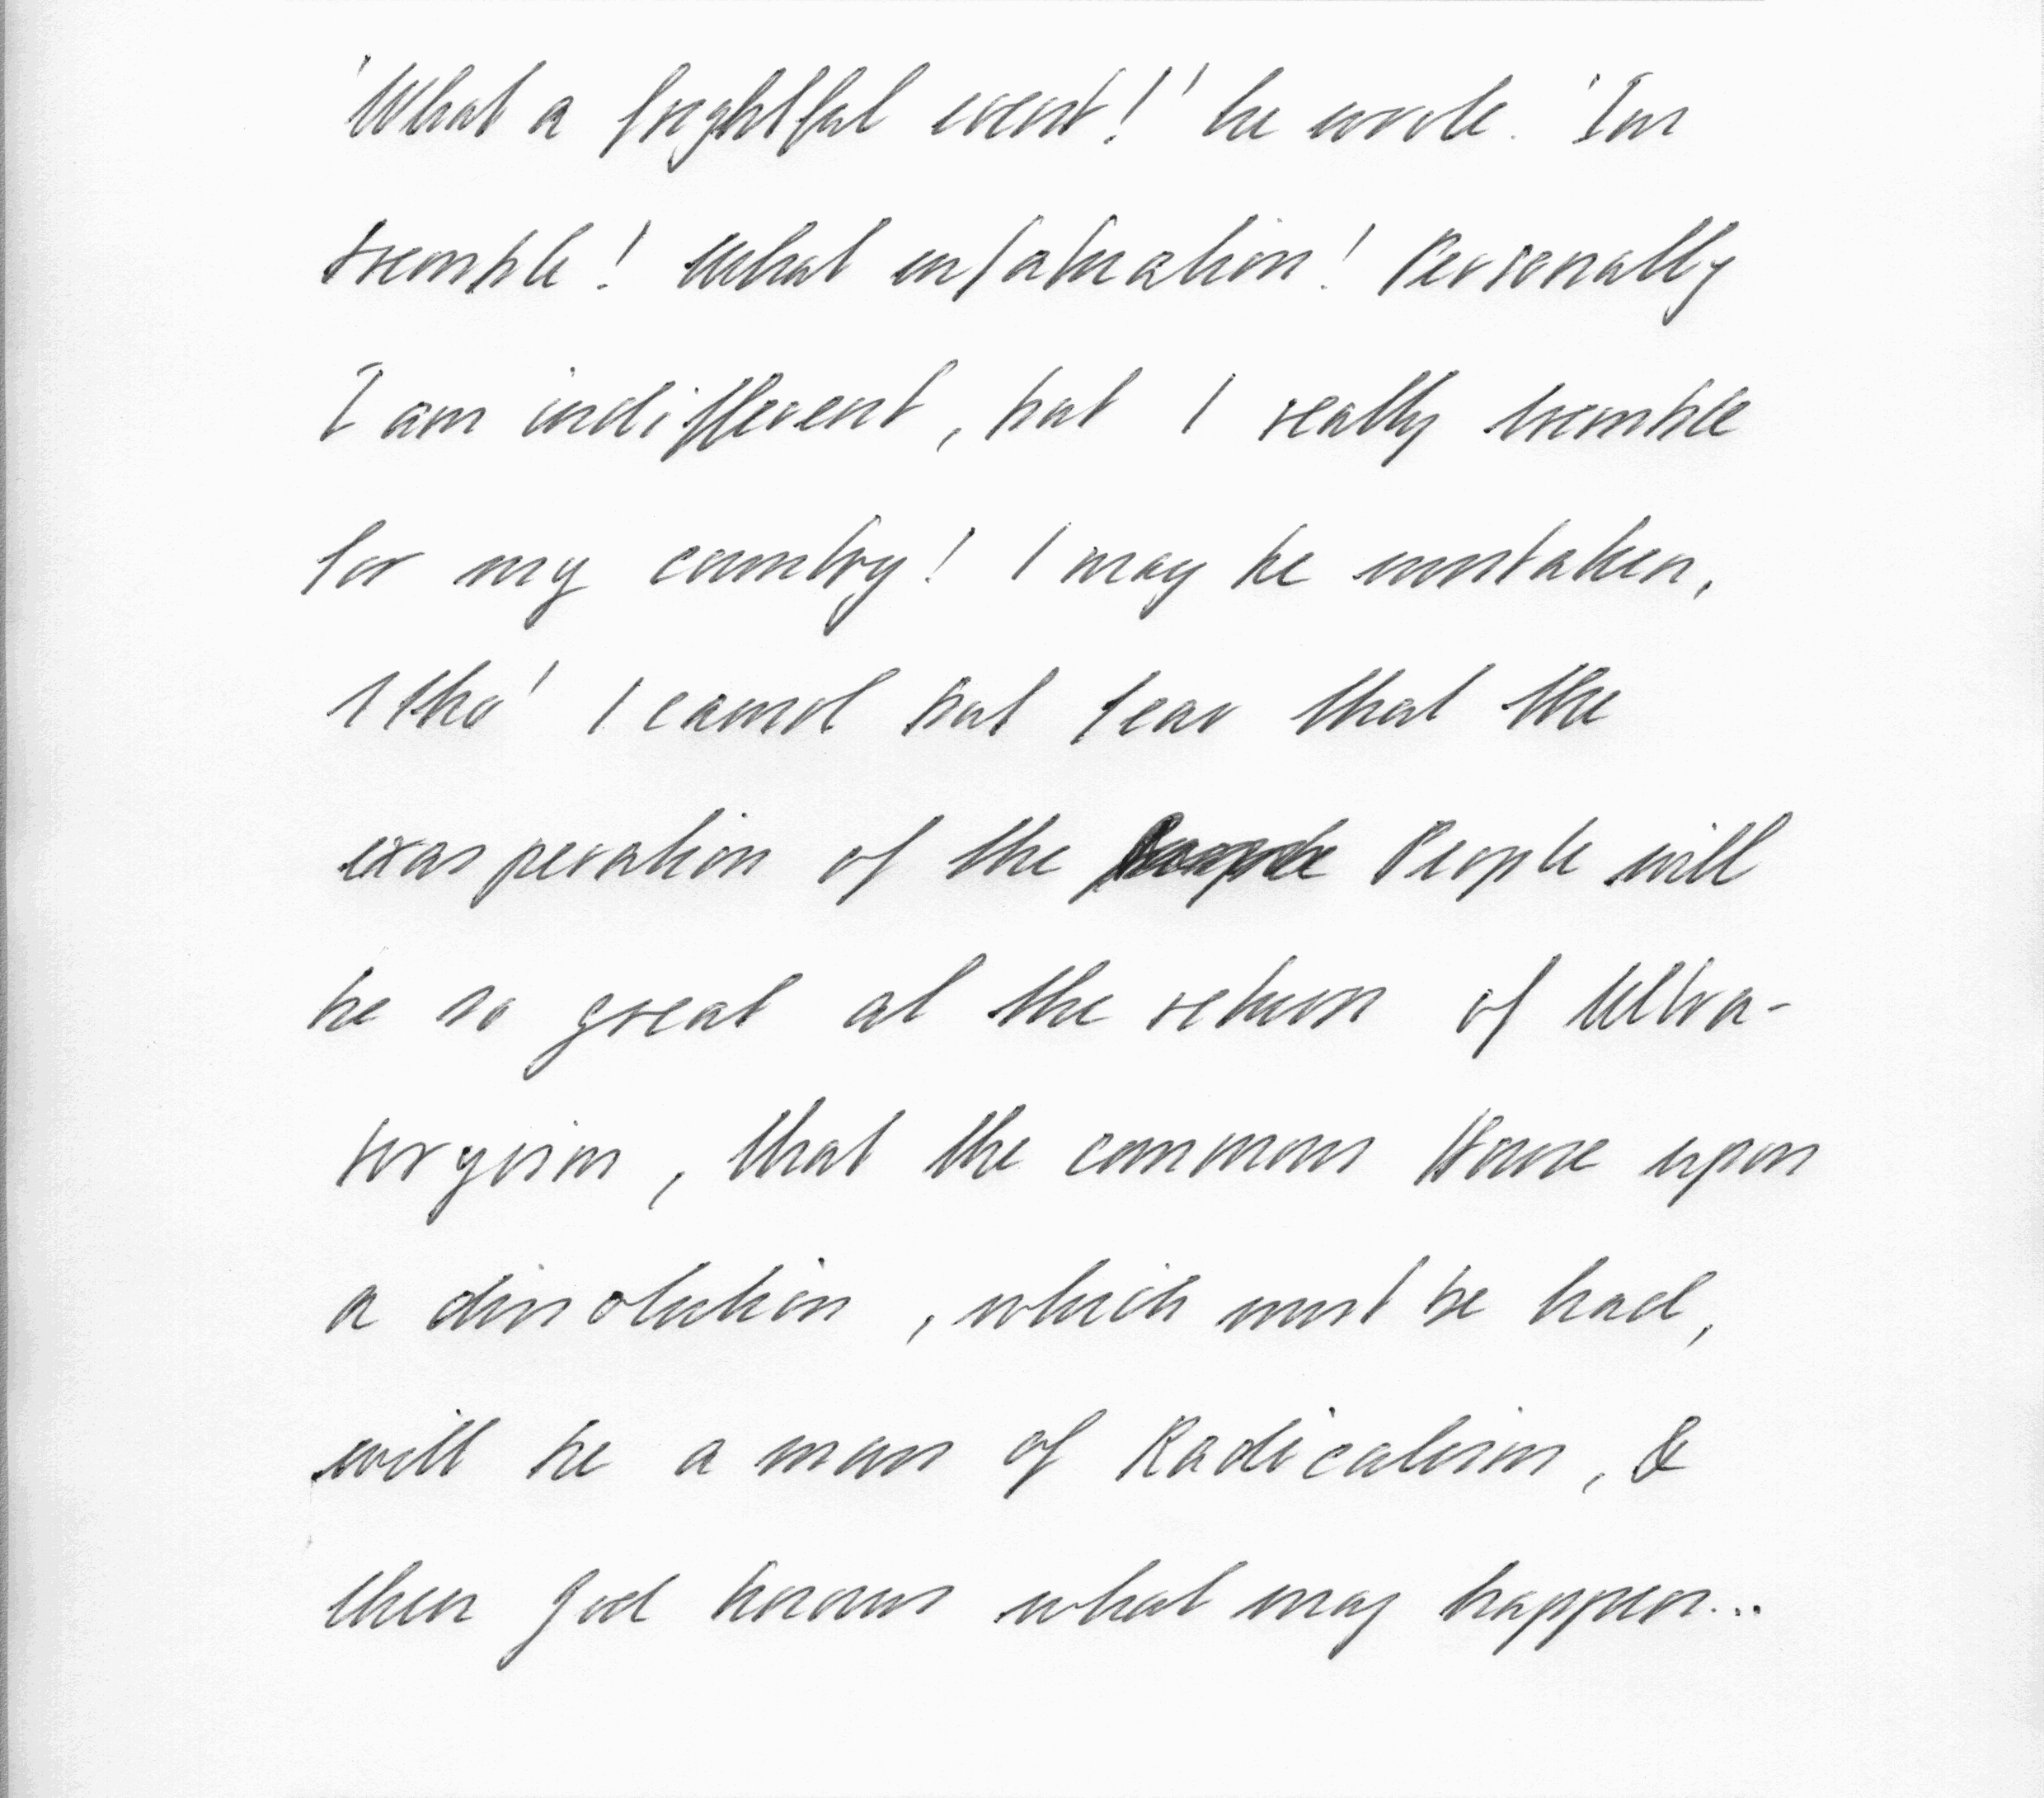 'What a frightful event!' he wrote. 'Im
tremble! What infatuation! Personally
I am indifferent, but I really tremble
for my country! I may be mistaken,
tho' I cannot but fear that the
exasperation of the People will
be so great at the return of Ultra-
toryism, that the commons House upon
a dissolution, which must be had,
will be a mass of Radicalism, &
then God knows what may happen...